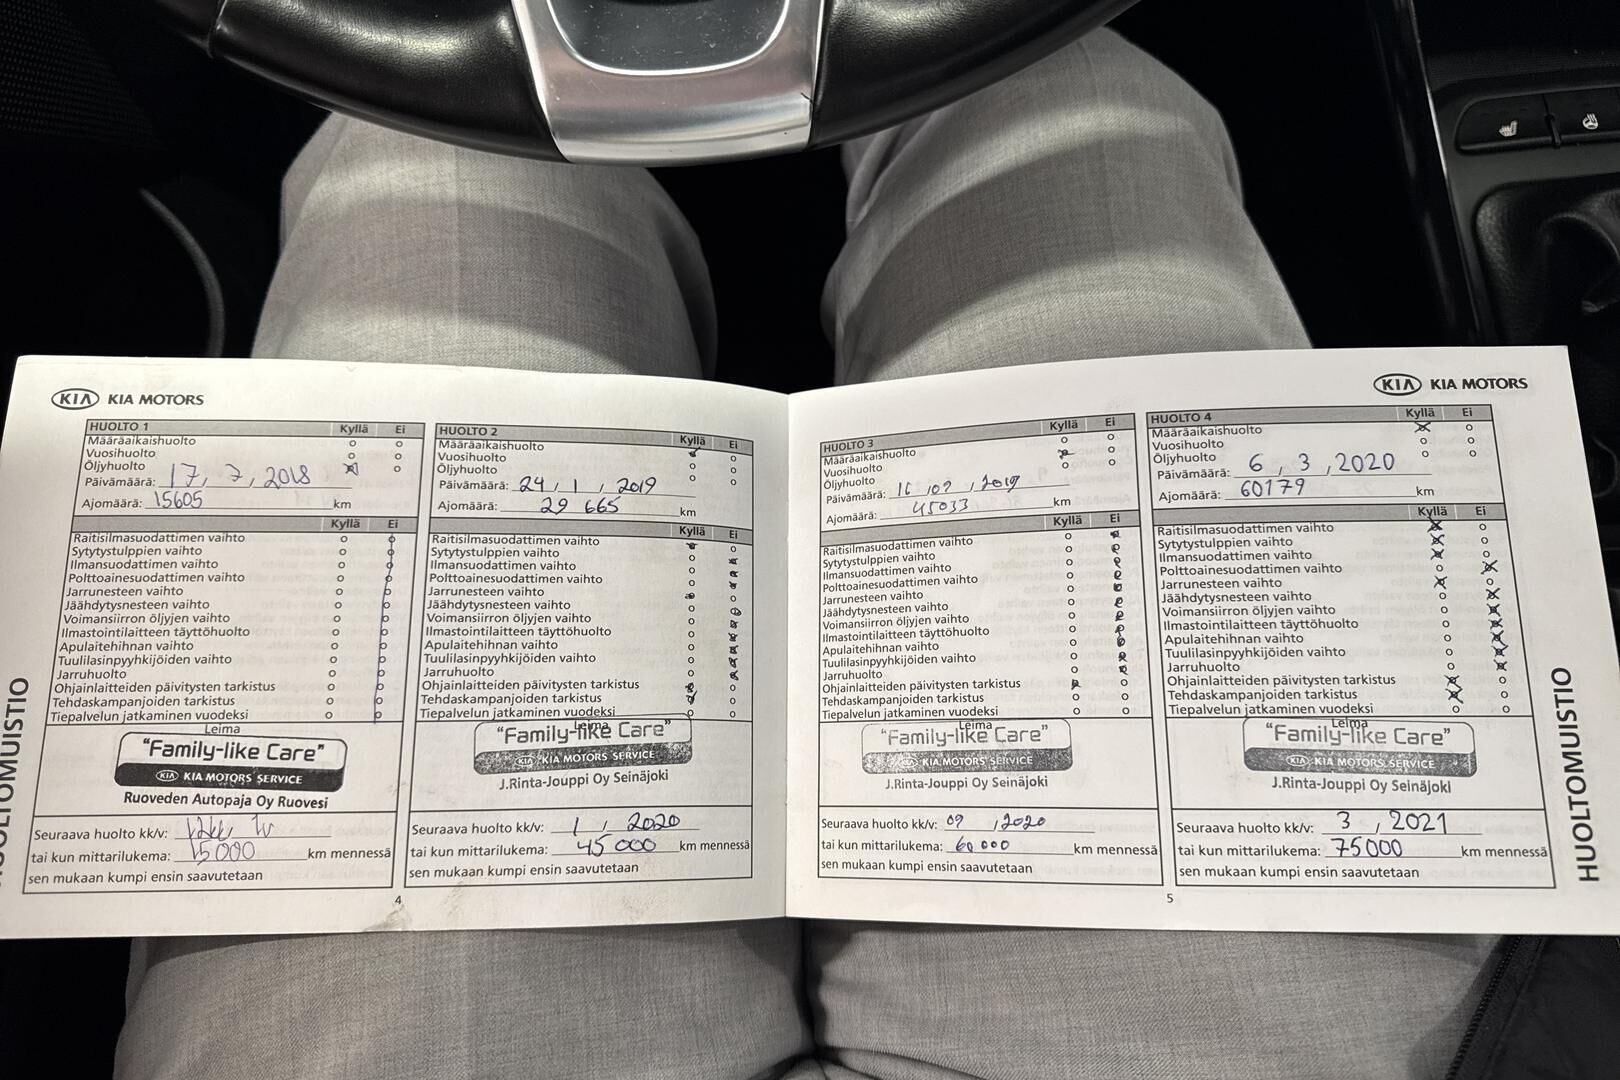 KIA KIA MOTORS
HUOLTO 1 Kyllä Ei
Määräaikaishuolto
Vuosihuolto
Öljyhuolto
Päivämäärä: 17, 7, 2018
Ajomäärä: 15605 km
Kyllä Ei
Raitisilmasuodattimen vaihto
Sytytystulppien vaihto
Ilmansuodattimen vaihto
Polttoainesuodattimen vaihto
Jarrunesteen vaihto
Jäähdytysnesteen vaihto
Voimansiirron öljyjen vaihto
Ilmastointilaitteen täyttöhuolto
Apulaitehihnan vaihto
Tuulilasinpyyhkijöiden vaihto
Jarruhuolto
Ohjainlaitteiden päivitysten tarkistus
Tehdaskampanjoiden tarkistus
Tiepalvelun jatkaminen vuodeksi
Leima
"Family-like Care"
KIA KIA MOTORS SERVICE
Ruoveden Autopaja Oy Ruovesi
Seuraava huolto kk/v: 12kk, 1v
tai kun mittarilukema: 15000 km mennessä
sen mukaan kumpi ensin saavutetaan
4
HUOLTO 2 Kyllä Ei
Määräaikaishuolto
Vuosihuolto
Öljyhuolto
Päivämäärä: 24, 1, 2019
Ajomäärä: 29 665 km
Kyllä Ei
Raitisilmasuodattimen vaihto
Sytytystulppien vaihto
Ilmansuodattimen vaihto
Polttoainesuodattimen vaihto
Jarrunesteen vaihto
Jäähdytysnesteen vaihto
Voimansiirron öljyjen vaihto
Ilmastointilaitteen täyttöhuolto
Apulaitehihnan vaihto
Tuulilasinpyyhkijöiden vaihto
Jarruhuolto
Ohjainlaitteiden päivitysten tarkistus
Tehdaskampanjoiden tarkistus
Tiepalvelun jatkaminen vuodeksi
Leima
"Family-like Care"
KIA KIA MOTORS SERVICE
J.Rinta-Jouppi Oy Seinäjoki
Seuraava huolto kk/v: 1, 2020
tai kun mittarilukema: 45000 km mennessä
sen mukaan kumpi ensin saavutetaan
HUOLTOMUISTIO
KIA KIA MOTORS
HUOLTO 3 Kyllä Ei
Määräaikaishuolto
Vuosihuolto
Öljyhuolto
Päivämäärä: 16, 09, 2019
Ajomäärä: 45033 km
Kyllä Ei
Raitisilmasuodattimen vaihto
Sytytystulppien vaihto
Ilmansuodattimen vaihto
Polttoainesuodattimen vaihto
Jarrunesteen vaihto
Jäähdytysnesteen vaihto
Voimansiirron öljyjen vaihto
Ilmastointilaitteen täyttöhuolto
Apulaitehihnan vaihto
Tuulilasinpyyhkijöiden vaihto
Jarruhuolto
Ohjainlaitteiden päivitysten tarkistus
Tehdaskampanjoiden tarkistus
Tiepalvelun jatkaminen vuodeksi
Leima
"Family-like Care"
KIA KIA MOTORS SERVICE
J.Rinta-Jouppi Oy Seinäjoki
Seuraava huolto kk/v: 09, 2020
tai kun mittarilukema: 60000 km mennessä
sen mukaan kumpi ensin saavutetaan
HUOLTO 4 Kyllä Ei
Määräaikaishuolto
Vuosihuolto
Öljyhuolto
Päivämäärä: 6, 3, 2020
Ajomäärä: 60179 km
Kyllä Ei
Raitisilmasuodattimen vaihto
Sytytystulppien vaihto
Ilmansuodattimen vaihto
Polttoainesuodattimen vaihto
Jarrunesteen vaihto
Jäähdytysnesteen vaihto
Voimansiirron öljyjen vaihto
Ilmastointilaitteen täyttöhuolto
Apulaitehihnan vaihto
Tuulilasinpyyhkijöiden vaihto
Jarruhuolto
Ohjainlaitteiden päivitysten tarkistus
Tehdaskampanjoiden tarkistus
Tiepalvelun jatkaminen vuodeksi
Leima
"Family-like Care"
KIA KIA MOTORS SERVICE
J.Rinta-Jouppi Oy Seinäjoki
Seuraava huolto kk/v: 3, 2021
tai kun mittarilukema: 75000 km mennessä
sen mukaan kumpi ensin saavutetaan
5
HUOLTOMUISTIO